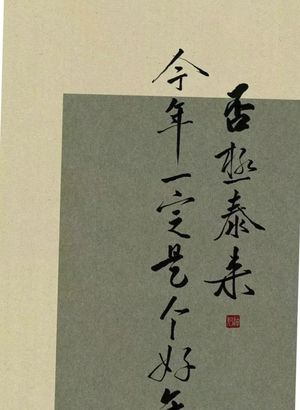 否极泰来
今年一定是个好